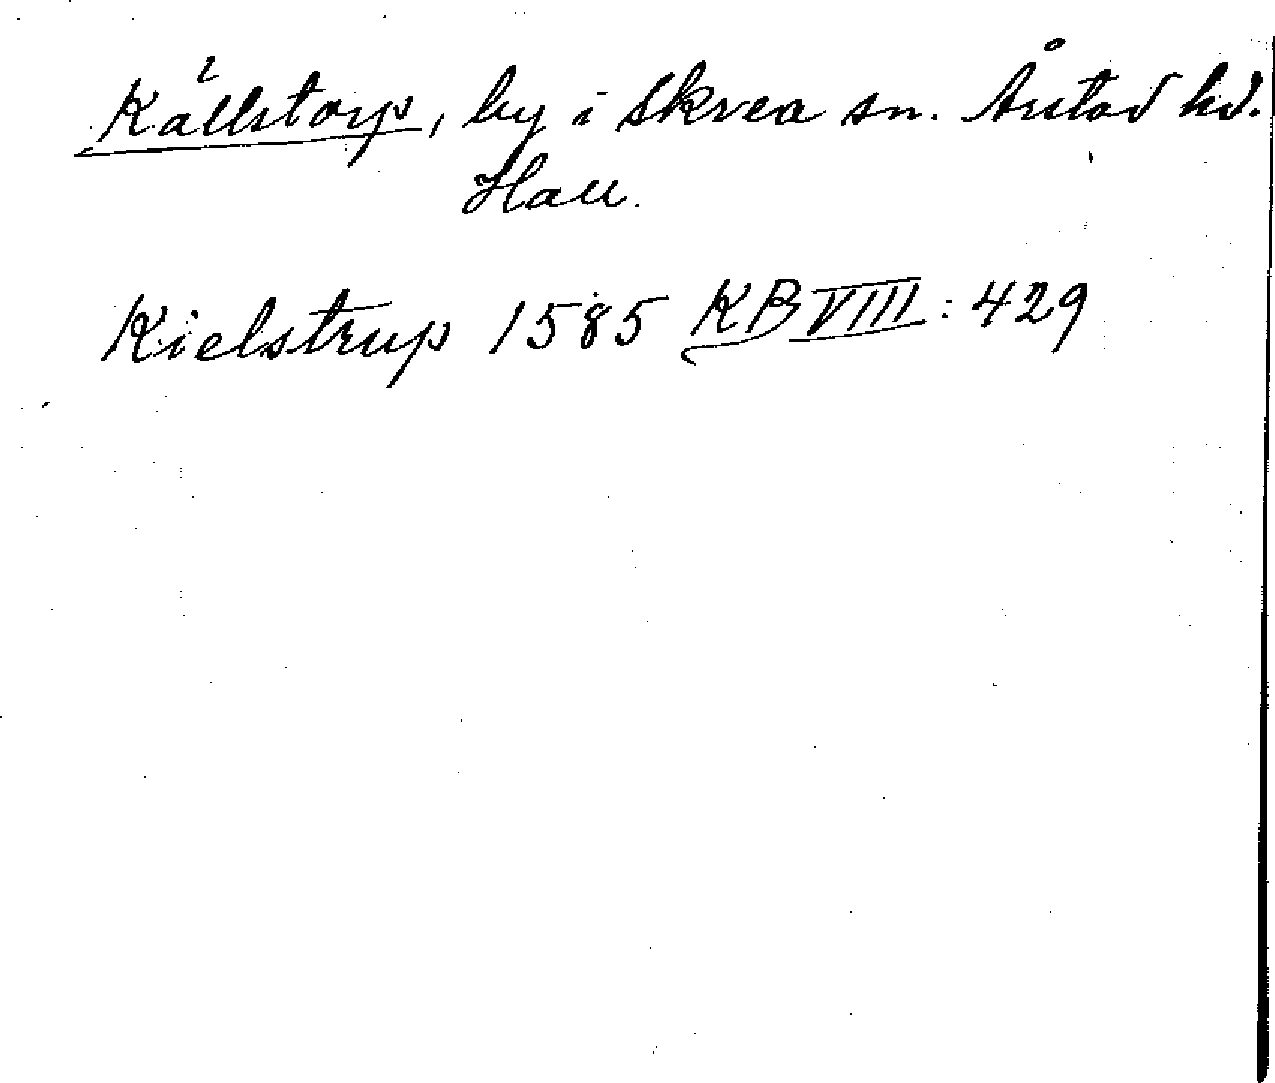 Källstorp, by i Skrea sn. Årstad hd.
Hall.
Kielstrup 1585 KB VIII: 429